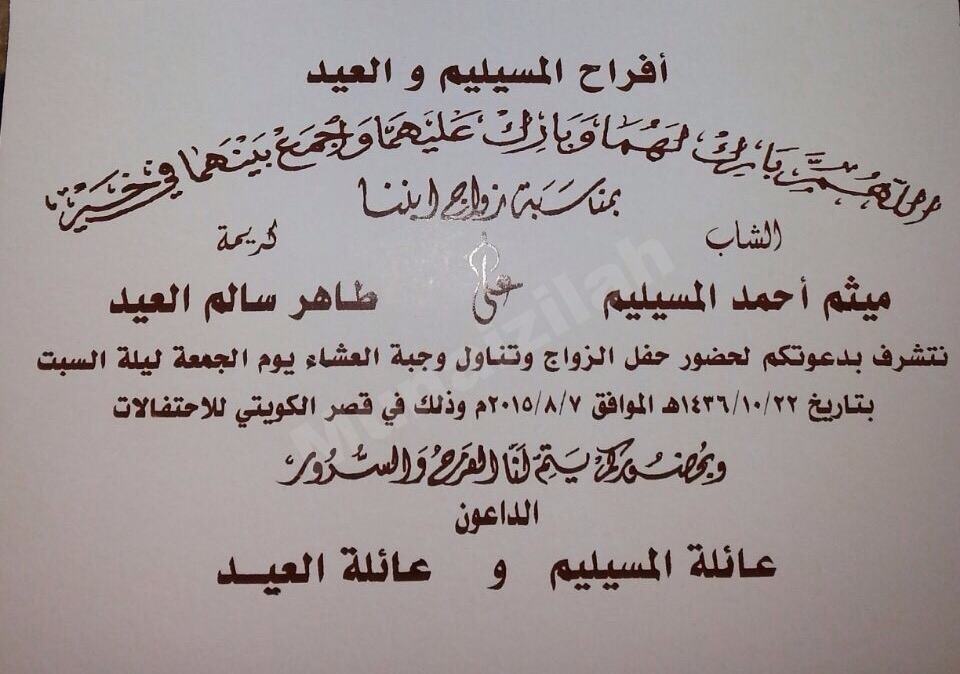 أفراح المسيليم و العيد
اللهُمَّ بَارِكْ لَهُمَا وَبَارِكْ عَلَيْهِمَا وَاجْمَعْ بَيْنَهُمَا فِي خَيْرٍ
بمناسَبَة زواج ابننا
الشاب كريمة
ميثم أحمد المسيليم على طاهر سالم العيد
نتشرف بدعوتكم لحضور حفل الزواج وتناول وجبة العشاء يوم الجمعة ليلة السبت
بتاريخ ١٤٣٦/١٠/٢٢هـ الموافق ٢٠١٥/٨/٧م وذلك في قصر الكويتي للاحتفالات
وبحضوركم يَتِمّ لَنَا الفَرَحُ وَالسُّرُورُ
الداعون
عائلة المسيليم و عائلة العيـد
Munaizilah